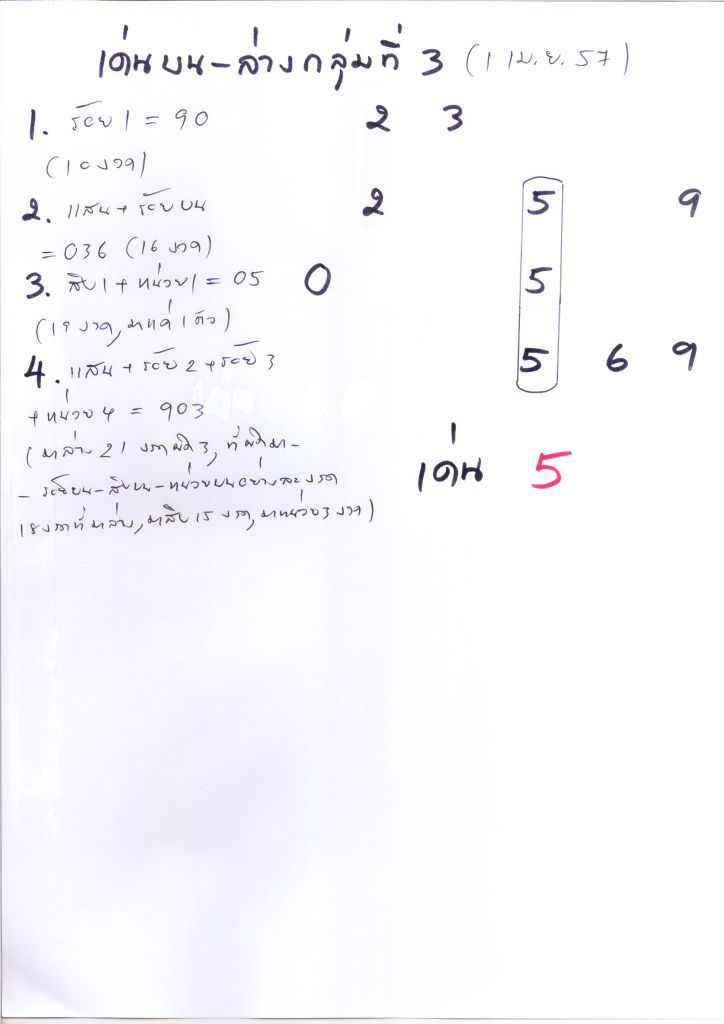 เด่นบน-ล่างกลุ่มที่ 3 (1 เม.ย. 57)
1. ร้อย 1 = 90 2 3
(10 งวด)
2. แสน + ร้อยบน 2 5 9
= 036 (16 งวด)
3. สิบ 1 + หน่วย 1 = 05 0 5
(19 งวด, มาแค่ 1 ตัว)
4. แสน + ร้อย 2 + ร้อย 3 5 6 9
+ หน่วย 4 = 903
(มาล่าง 21 งวดผิด 3, ที่ผิดมา-
- ร้อยบน-สิบบน-หน่วยบนอย่างละงวด
18 งวดที่มาล่าง, มาสิบ 15 งวด, มาหน่วย 3 งวด)
เด่น 5